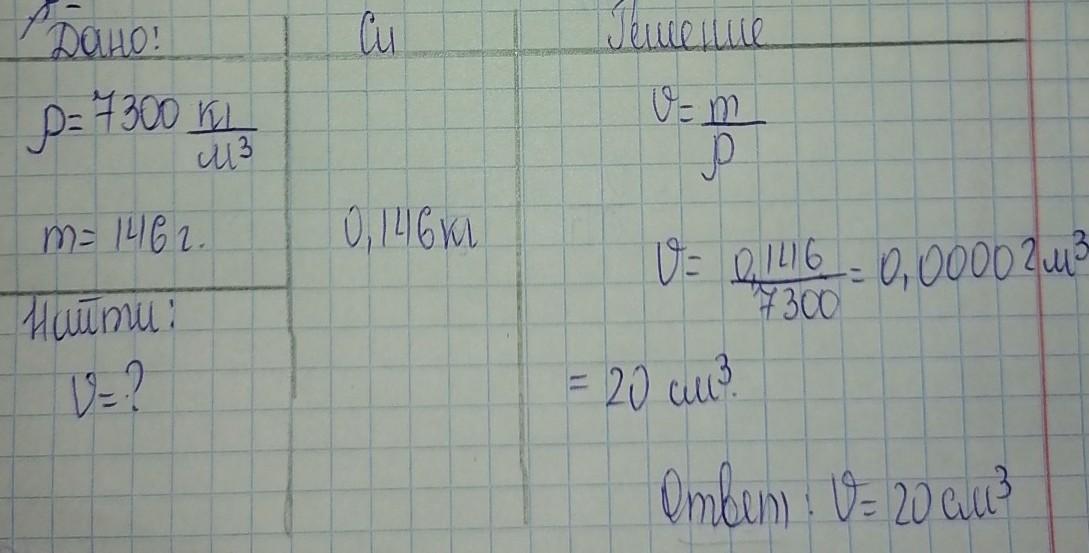 Дано:
Си
Решение
ρ = 7300 кг/м³
m = 146 г.
0,146 кг
Найти:
V = ?
V = m/ρ
V = 0,146/7300 = 0,00002 м³
= 20 см³.
Ответ: V = 20 см³